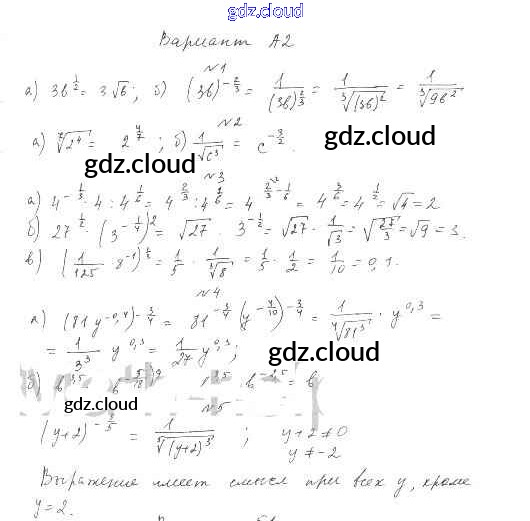 gdz.cloud
Вариант А2
№1
а) 3b^{1/2} = 3√b; б) (3b)^{-2/3} = 1/(3b)^{2/3} = 1/∛(3b)² = 1/∛9b²
№2
а) ⁷√2⁴ = 2^{4/7}; б) 1/√c³ = c^{-3/2}.
gdz.cloud gdz.cloud
№3
а) 4^{-1/3} · 4 : 4^{1/6} = 4^{2/3} : 4^{1/6} = 4^{2/3 - 1/6} = 4^{3/6} = 4^{1/2} = √4 = 2
б) 27^{1/2} · (3^{-1/4})² = √27 · 3^{-1/2} = √27 · 1/√3 = √27/3 = √9 = 3.
в) (1/125 · 8^{-1})^{1/3} = 1/5 · 1/∛8 = 1/5 · 1/2 = 1/10 = 0,1.
gdz.cloud
№4
а) (81y^{-0,4})^{-3/4} = 81^{-3/4} (y^{-4/10})^{-3/4} = 1/⁴√81³ · y^{0,3} =
= 1/3³ y^{0,3} = 1/27 y^{0,3};
gdz.cloud
б)
gdz.cloud
№5
= 1/⁵√(y+2)³ ; y+2≠0
y≠-2
Выражение имеет смысл при всех y, кроме
y=2.
gdz.cloud